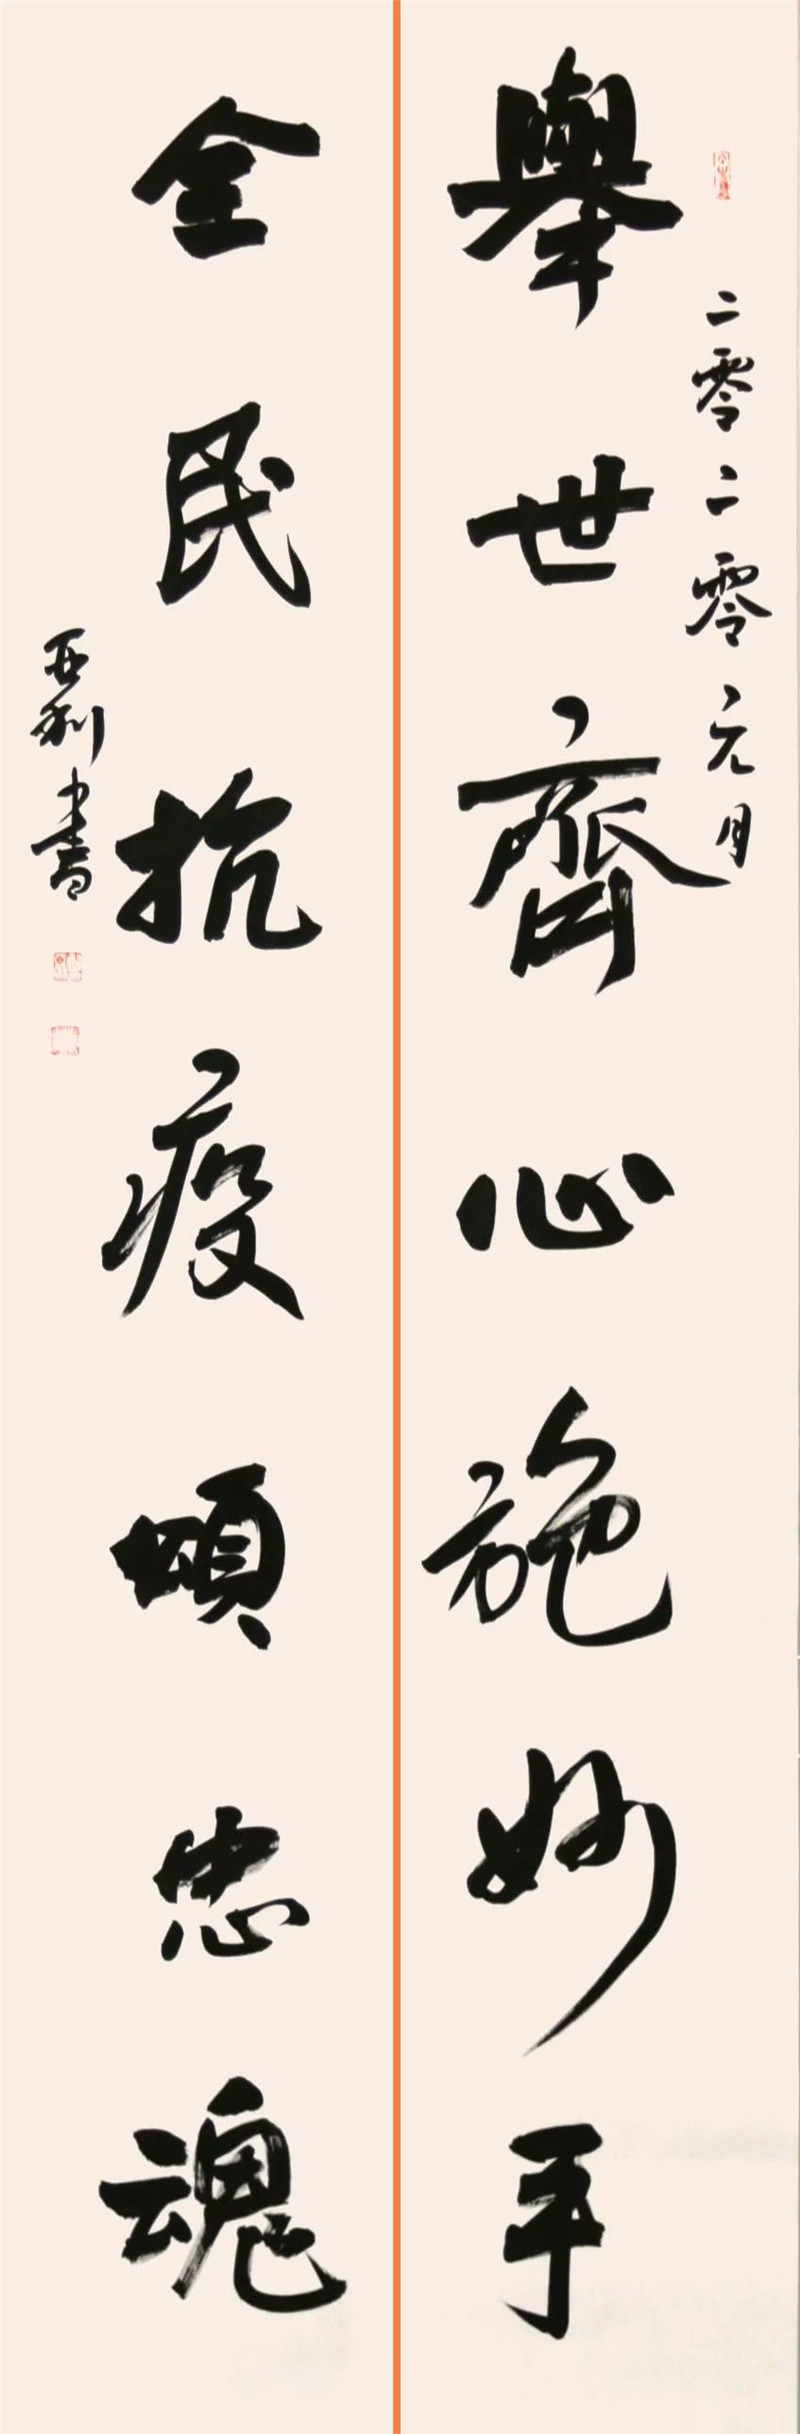 二零二零元月
舉世齊心施妙手
全民抗疫頌忠魂
亚利书